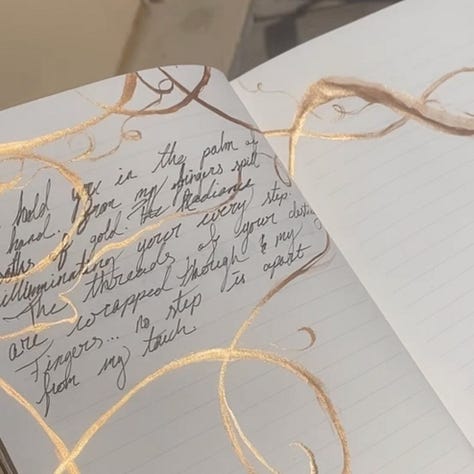 I hold you in the palm of
hand. From my fingers spill
paths of gold. The Radiance
illuminating your every step.
The threads of your destiny
are wrapped though & my
Fingers... no step is apart
from my touch.